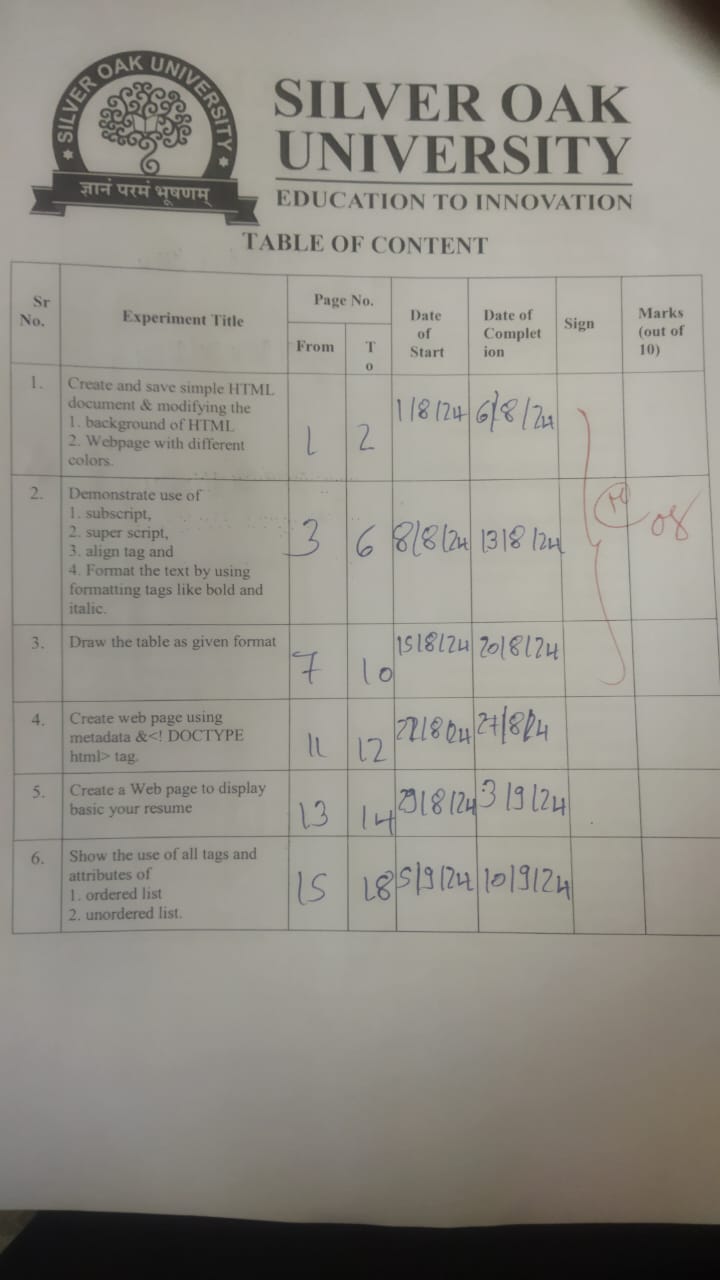 SILVER OAK UNIVERSITY
ज्ञानं परमं भूषणम्
SILVER OAK
UNIVERSITY
EDUCATION TO INNOVATION
TABLE OF CONTENT
Sr No.
Experiment Title
Page No.
From
To
Date of Start
Date of Completion
Sign
Marks (out of 10)
1.
Create and save simple HTML
document & modifying the
1. background of HTML
2. Webpage with different
colors.
1 2 1/8/24 6/8/24
2.
Demonstrate use of
1. subscript,
2. super script,
3. align tag and
4. Format the text by using
formatting tags like bold and
italic.
3 6 8/8/24 13/8/24
08
3.
Draw the table as given format
7 10 15/8/24 20/8/24
4.
Create web page using
metadata &<! DOCTYPE
html> tag.
11 12 22/8/24 27/8/24
5.
Create a Web page to display
basic your resume
13 14 29/8/24 3/9/24
6.
Show the use of all tags and
attributes of
1. ordered list
2. unordered list.
15 18 5/9/24 10/9/24